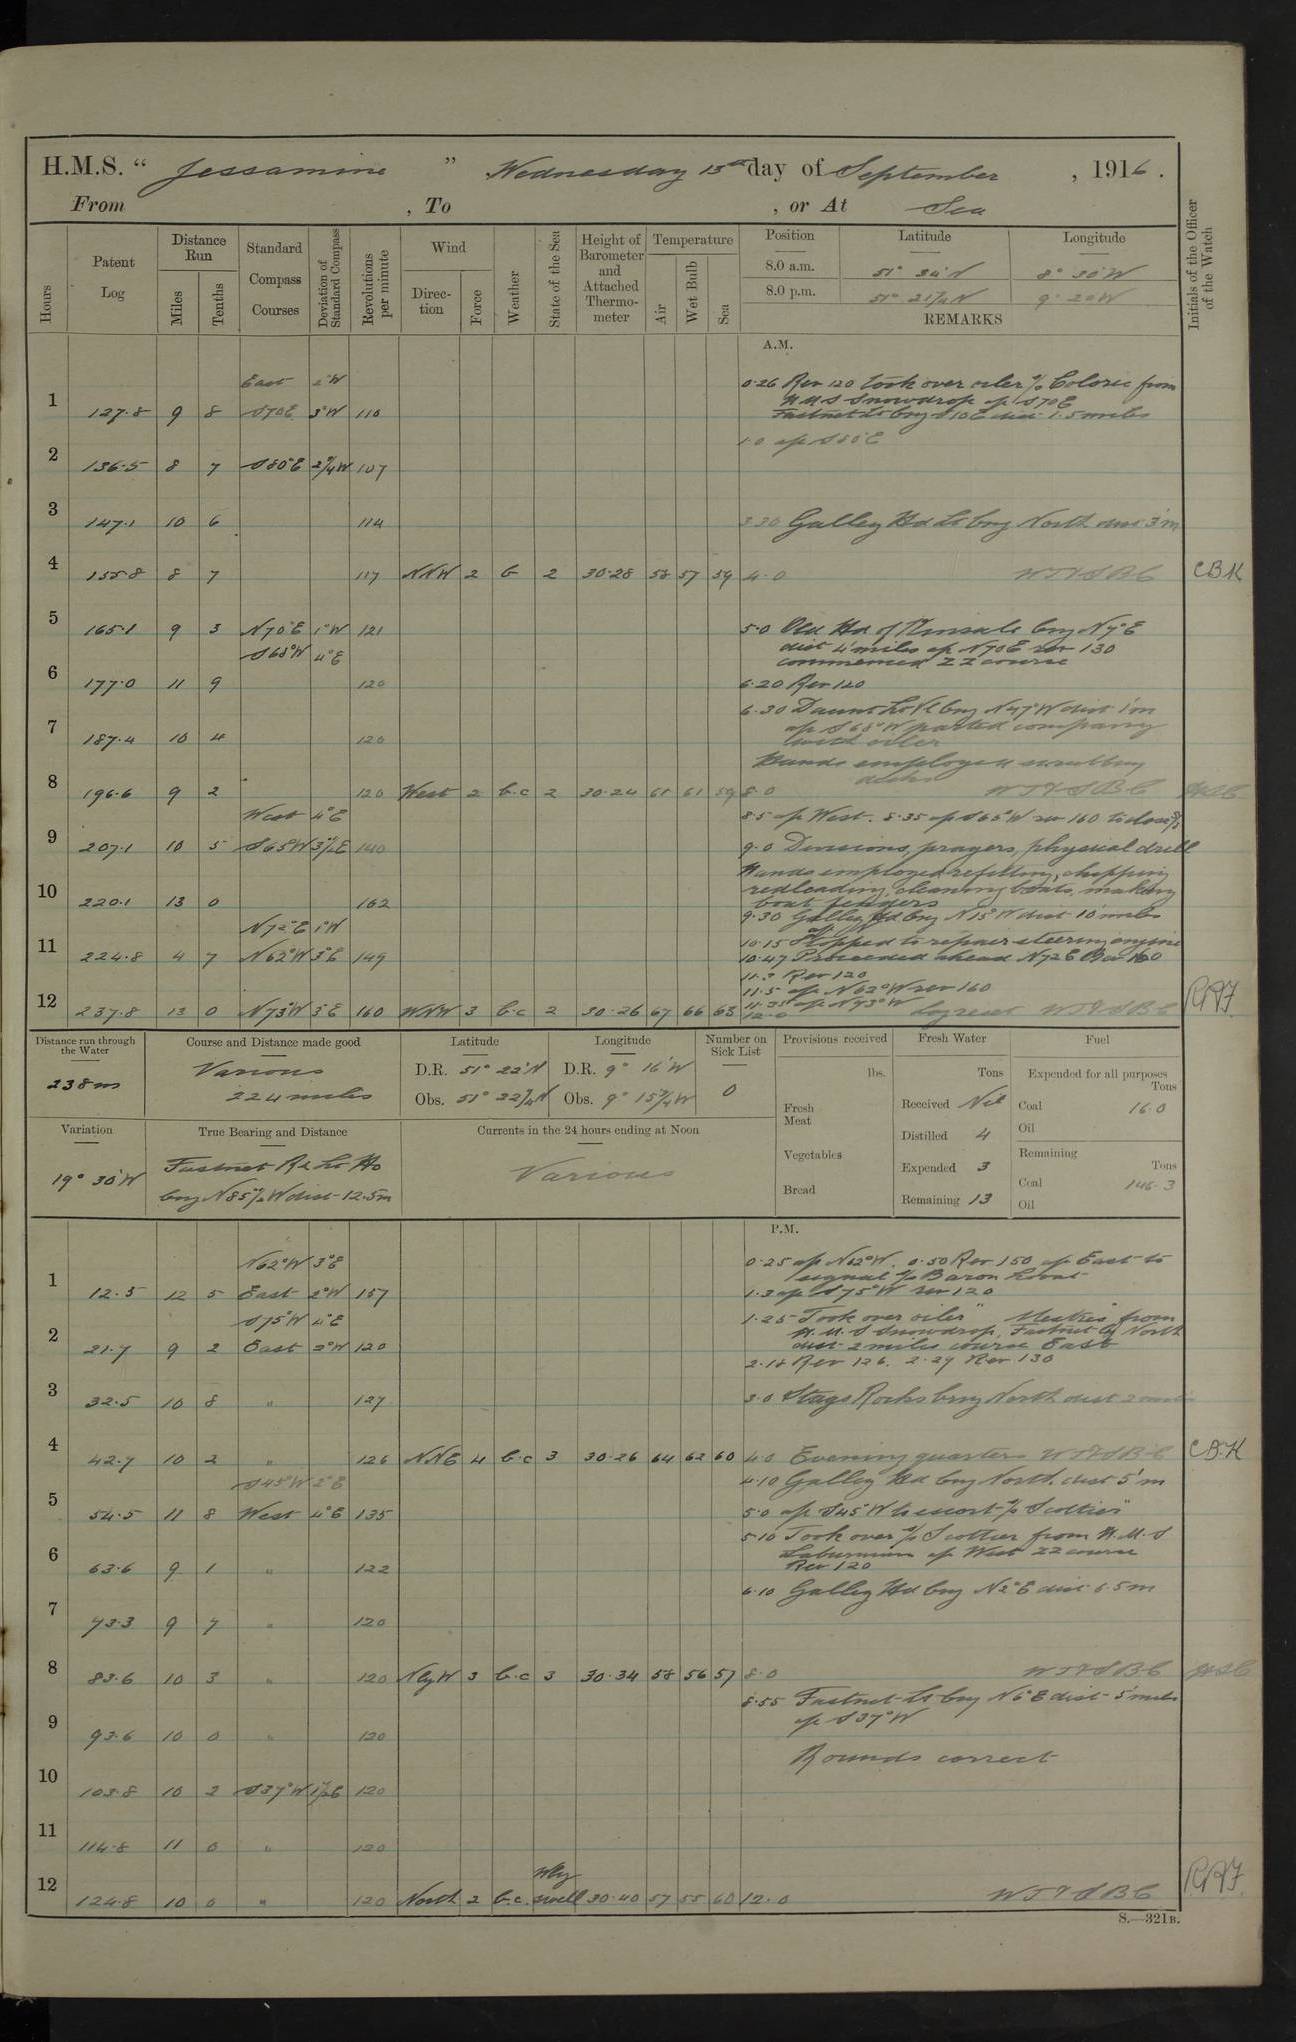 H.M.S. " Jessamine " Wednesday 13th day of September , 1916 .
From , To , or At Sea
Hours
Patent Log
Distance Run
Miles
Tenths
Standard Compass Courses
Deviation of Standard Compass
Revolutions per minute
Wind
Direction
Force
Weather
State of the Sea
Height of Barometer and Attached Thermometer
Temperature
Air
Wet Bulb
Sea
Position Latitude Longitude
8.0 a.m. 51° 34'N 8° 30'W
8.0 p.m. 51° 21½N 9° 20W
REMARKS
Initials of the Officer of the Watch
A.M.
East 2°W
1 127.8 9 8 S70E 3°W 110
0.26 Rev 120 took over oiler % Caloric from
HMS Snowdrop a/c S70E
Fastnet Lt brg S10E dist 1.5 miles
1.0 a/c S80E
2 136.5 8 7 S80°E 2¾W 107
3 147.1 10 6 114
3.30 Galley Hd Lt brg North dist 3'm
4 155.8 8 7 117 NNW 2 b 2 30.28 58 57 59 4.0 WT&SBC CBK
5 165.1 9 3 N70°E 1°W 121
5.0 Old Hd of Kinsale brg N7°E
dist 4 miles a/c N70E rev 130
commenced ZZ course
S68°W 4°E
6 177.0 11 9 120
6.20 Rev 120
6.30 Daunt Lt Vl brg N47°W dist 1'm
a/c S68°W parted company
with oiler
7 187.4 10 4 120
Hands employed scrubbing
decks
8 196.6 9 2 120 West 2 b.c 2 30.24 61 61 59 8.0 WT&SBC
West 4°E
8.5 a/c West. 8.35 a/c S65°W rev 160 to close %
9 207.1 10 5 S65°W 3½E 140
9.0 Divisions, prayers, physical drill
Hands employed refitting, chipping
redleading, cleaning boats, making
boat fenders
10 220.1 13 0 162
9.30 Galley Hd brg N15°W dist 10 miles
N72°E 1°W
10.15 Stopped to repair steering engine
11 224.8 4 7 N62°W 3°E 149
10.47 Proceeded ahead N72E Rev 160
11.3 Rev 120
11.5 a/c N62°W rev 160
11.35 a/c N73°W
12 237.8 13 0 N73°W 3°E 160 WNW 3 b.c 2 30.26 67 66 63 12.0 Log reset WT&SBC RAF
Distance run through the Water
238m
Course and Distance made good
Various
224 miles
Latitude
D.R. 51° 22'N
Obs. 51° 22¾N
Longitude
D.R. 9° 16'W
Obs. 9° 15¾W
Number on Sick List
0
Provisions received
lbs.
Fresh Meat
Vegetables
Bread
Fresh Water
Tons
Received Nil
Distilled 4
Expended 3
Remaining 13
Fuel
Expended for all purposes
Tons
Coal 16.0
Oil
Remaining
Tons
Coal 146.3
Oil
Variation
19° 30'W
True Bearing and Distance
Fastnet Rk Lt Ho
brg N85½W dist 12.5m
Currents in the 24 hours ending at Noon
Various
P.M.
N62°W 3°E
0.25 a/c N62°W. 0.50 Rev 150 a/c East to
signal % Baron Lovat
1 12.5 12 5 East 2°W 157
1.3 a/c S75°W rev 120
S75°W 4°E
1.25 Took over oiler from
H.M.S Snowdrop, Fastnet brg North
dist 2 miles course East
2 21.7 9 2 East 2°W 120
2.18 Rev 126. 2.29 Rev 130
3 32.5 10 8 " 127
3.0 Stags Rocks brng North dist 2 miles
4 42.7 10 2 " 126 NNE 4 b.c 3 30.26 64 62 60 4.0 Evening quarters WT&SBC CBK
S45°W 5°E
4.10 Galley Hd brg North. dist 5'm
5 54.5 11 8 West 4°E 135
5.0 a/c S45°W to escort % Scottier"
5.10 Took over % Scottier from H.M.S
Laburnum a/c West ZZ course
Rev 120
6 63.6 9 1 " 122
6.10 Galley Hd brg N2°E dist 6.5m
7 73.3 9 7 " 120
8 83.6 10 3 " 120 NbyW 3 b.c 3 30.34 58 56 57 8.0 WT&SBC
8.55 Fastnet Lt brg N6°E dist 5 miles
a/c S37°W
9 93.6 10 0 " 120
Rounds correct
10 103.8 10 2 S37°W 1½E 120
11 114.8 11 0 " 120
Nly
12 124.8 10 0 " 120 North 2 b.c. swell 30.40 57 55 60 12.0 WT&SBC RAF
S.—321B.